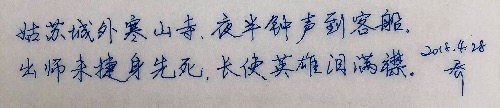 姑苏城外寒山寺，夜半钟声到客船。
出师未捷身先死，长使英雄泪满襟。
2018.4.28